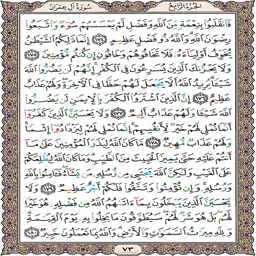 سُورَةُ آلِ عِمْرَانَ الجُزْءُ الرَّابِعُ
فَٱنقَلَبُوا۟ بِنِعْمَةٍ مِّنَ ٱللَّهِ وَفَضْلٍ لَّمْ يَمْسَسْهُمْ سُوٓءٌ وَٱتَّبَعُوا۟
رِضْوَٰنَ ٱللَّهِ وَٱللَّهُ ذُو فَضْلٍ عَظِيمٍ ١٧٤ إِنَّمَا ذَٰلِكُمُ ٱلشَّيْطَٰنُ
يُخَوِّفُ أَوْلِيَآءَهُۥ فَلَا تَخَافُوهُمْ وَخَافُونِ إِن كُنتُم مُّؤْمِنِينَ ١٧٥
وَلَا يَحْزُنكَ ٱلَّذِينَ يُسَٰرِعُونَ فِى ٱلْكُفْرِ إِنَّهُمْ لَن يَضُرُّوا۟ ٱللَّهَ
شَيْـًٔا يُرِيدُ ٱللَّهُ أَلَّا يَجْعَلَ لَهُمْ حَظًّا فِى ٱلْـَٔاخِرَةِ وَلَهُمْ عَذَابٌ
عَظِيمٌ ١٧٦ إِنَّ ٱلَّذِينَ ٱشْتَرَوُا۟ ٱلْكُفْرَ بِٱلْإِيمَٰنِ لَن يَضُرُّوا۟
ٱللَّهَ شَيْـًٔا وَلَهُمْ عَذَابٌ أَلِيمٌ ١٧٧ وَلَا يَحْسَبَنَّ ٱلَّذِينَ كَفَرُوٓا۟
أَنَّمَا نُمْلِى لَهُمْ خَيْرٌ لِّأَنفُسِهِمْ إِنَّمَا نُمْلِى لَهُمْ لِيَزْدَادُوٓا۟ إِثْمًا
وَلَهُمْ عَذَابٌ مُّهِينٌ ١٧٨ مَّا كَانَ ٱللَّهُ لِيَذَرَ ٱلْمُؤْمِنِينَ عَلَىٰ مَآ
أَنتُمْ عَلَيْهِ حَتَّىٰ يَمِيزَ ٱلْخَبِيثَ مِنَ ٱلطَّيِّبِ وَمَا كَانَ ٱللَّهُ لِيُطْلِعَكُمْ
عَلَى ٱلْغَيْبِ وَلَٰكِنَّ ٱللَّهَ يَجْتَبِى مِن رُّسُلِهِۦ مَن يَشَآءُ فَـَٔامِنُوا۟ بِٱللَّهِ
وَرُسُلِهِۦ وَإِن تُؤْمِنُوا۟ وَتَتَّقُوا۟ فَلَكُمْ أَجْرٌ عَظِيمٌ ١٧٩ وَلَا
يَحْسَبَنَّ ٱلَّذِينَ يَبْخَلُونَ بِمَآ ءَاتَىٰهُمُ ٱللَّهُ مِن فَضْلِهِۦ هُوَ خَيْرًا
لَّهُم بَلْ هُوَ شَرٌّ لَّهُمْ سَيُطَوَّقُونَ مَا بَخِلُوا۟ بِهِۦ يَوْمَ ٱلْقِيَٰمَةِ
وَلِلَّهِ مِيرَٰثُ ٱلسَّمَٰوَٰتِ وَٱلْأَرْضِ وَٱللَّهُ بِمَا تَعْمَلُونَ خَبِيرٌ ١٨٠
٧٣